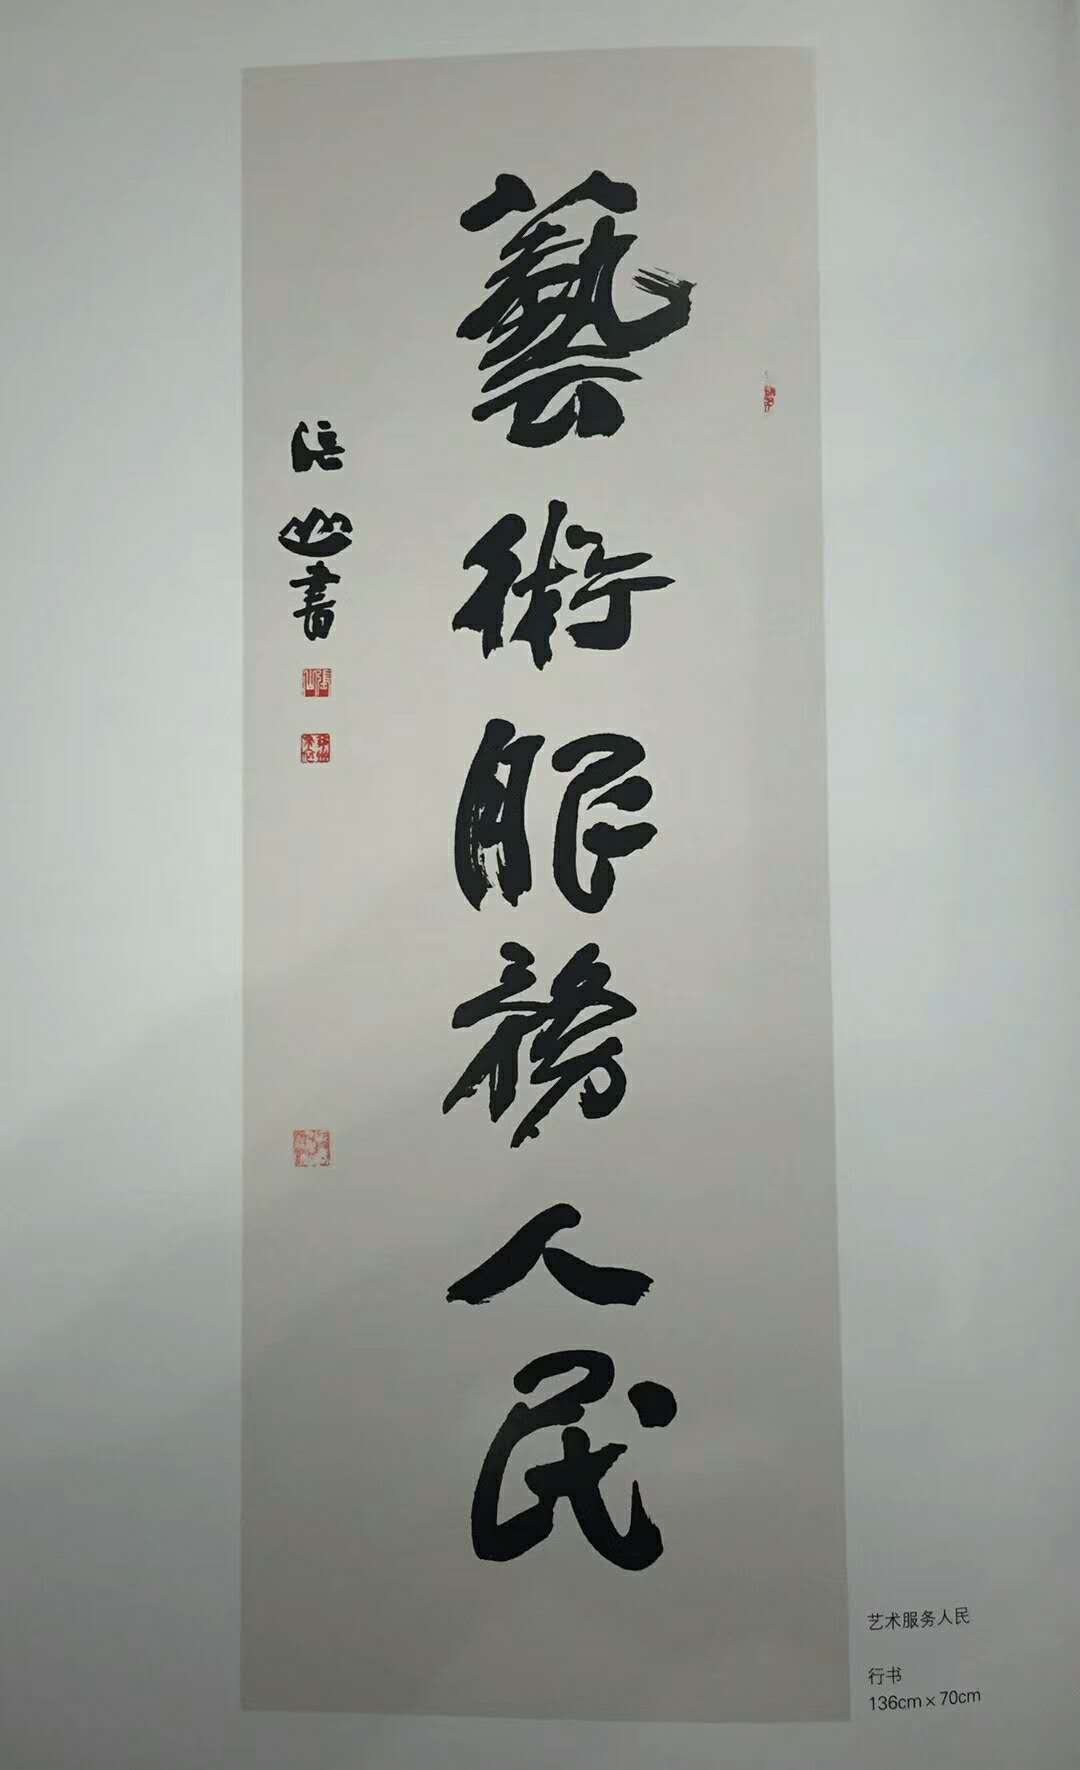 藝術服務人民
山書
艺术服务人民
行书
136cm×70cm